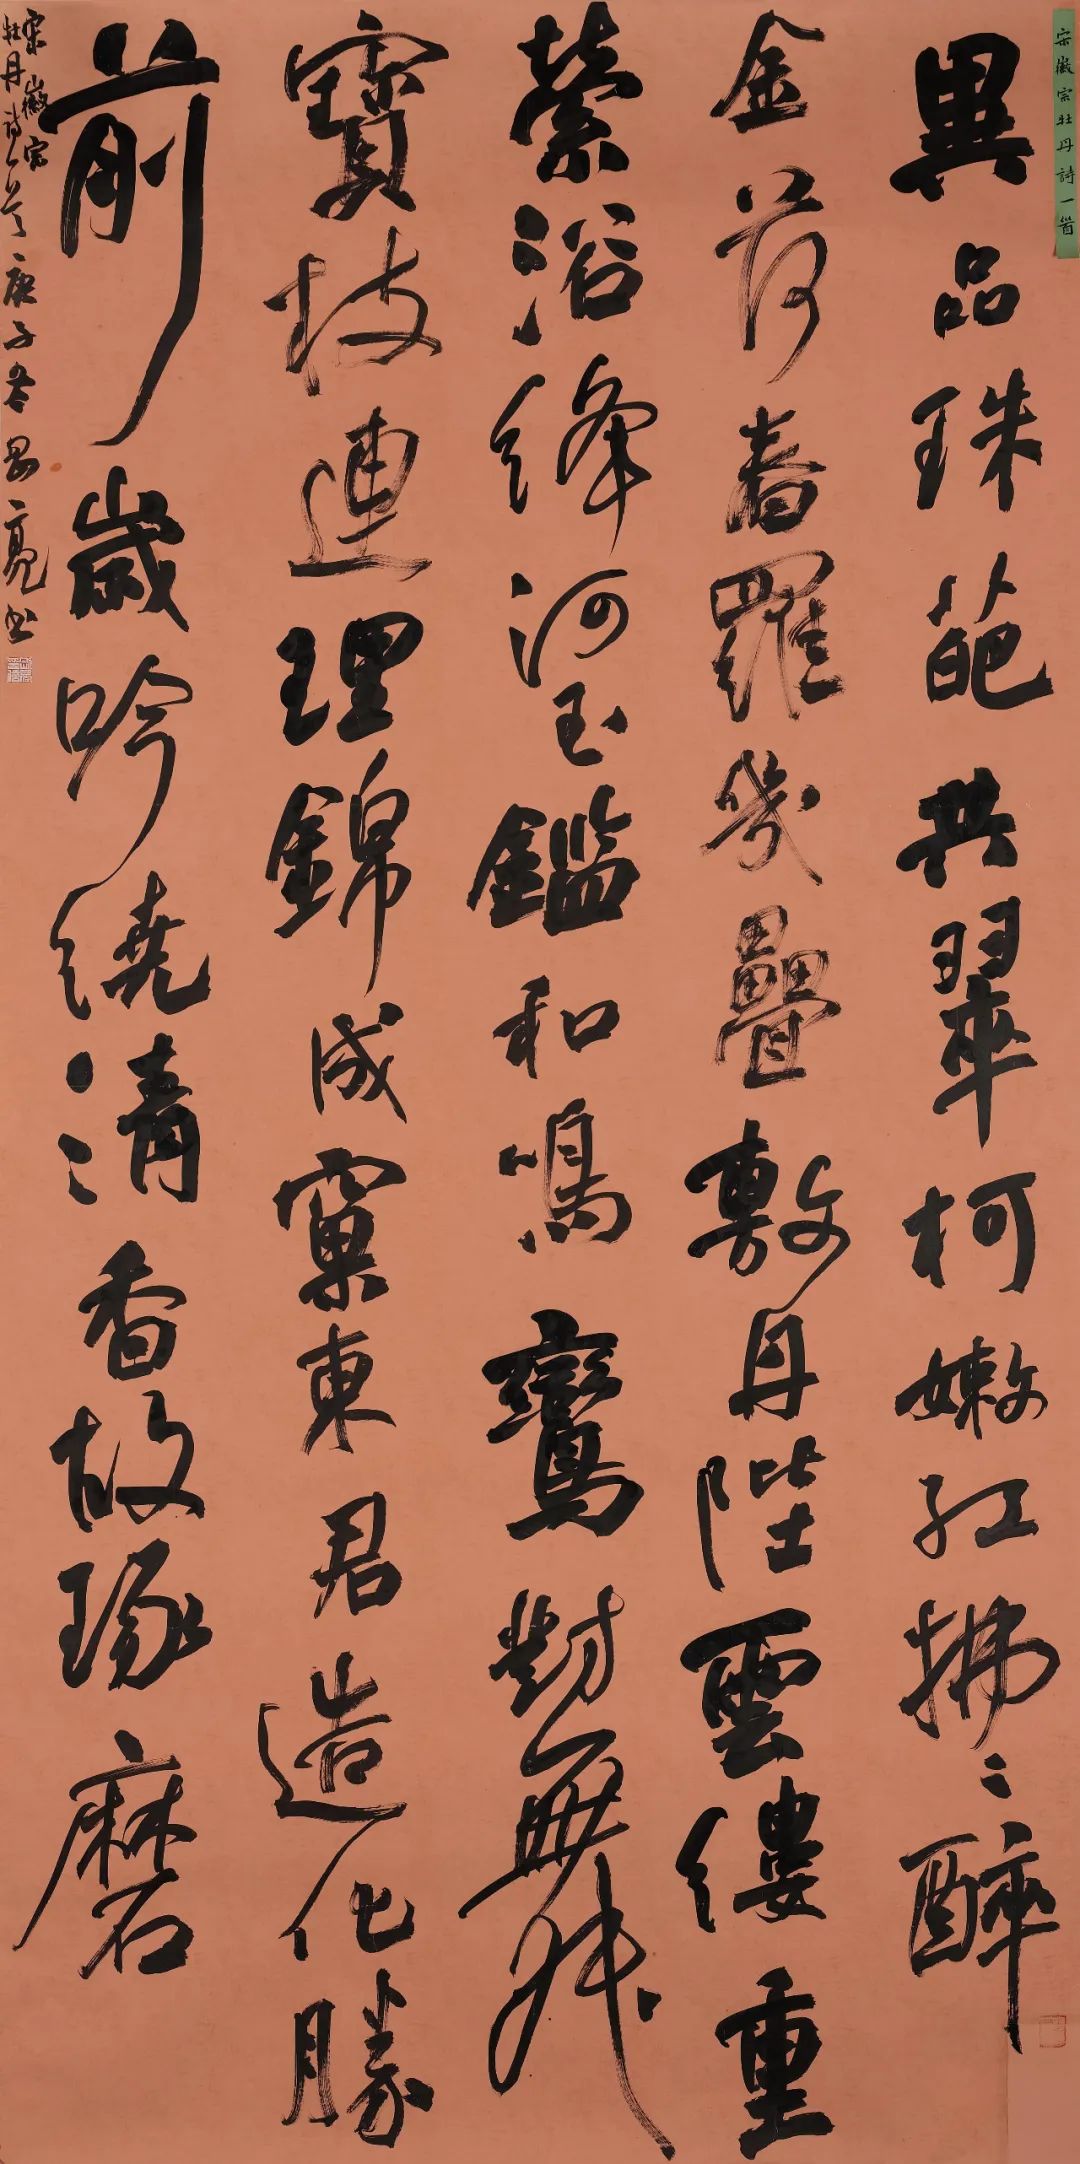 宋徽宗牡丹詩一首
異品珠葩共翠柯嫩紅拂〻醉
金荷春羅幾疊敷丹陛雲縷重
縈浴絳河玉鑑和鳴鸞對舞
寶枝連理錦成窠東君造化勝
前歲吟繞清香故琢磨
宋徽宗
牡丹詩一首庚子冬亮書